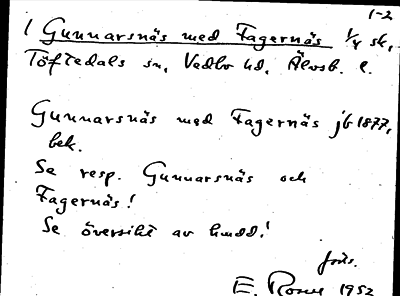 1-2
1 Gunnarsnäs med Fagernäs 1/4 sk,
Töftedals sn, Vedbo hd, Älvsb. l.
Gunnarsnäs med Fagernäs jb 1877,
bek.
Se resp. Gunnarsnäs och
Fagernäs!
Se översikt av hmdd!
forts.
E. Rosell 1952